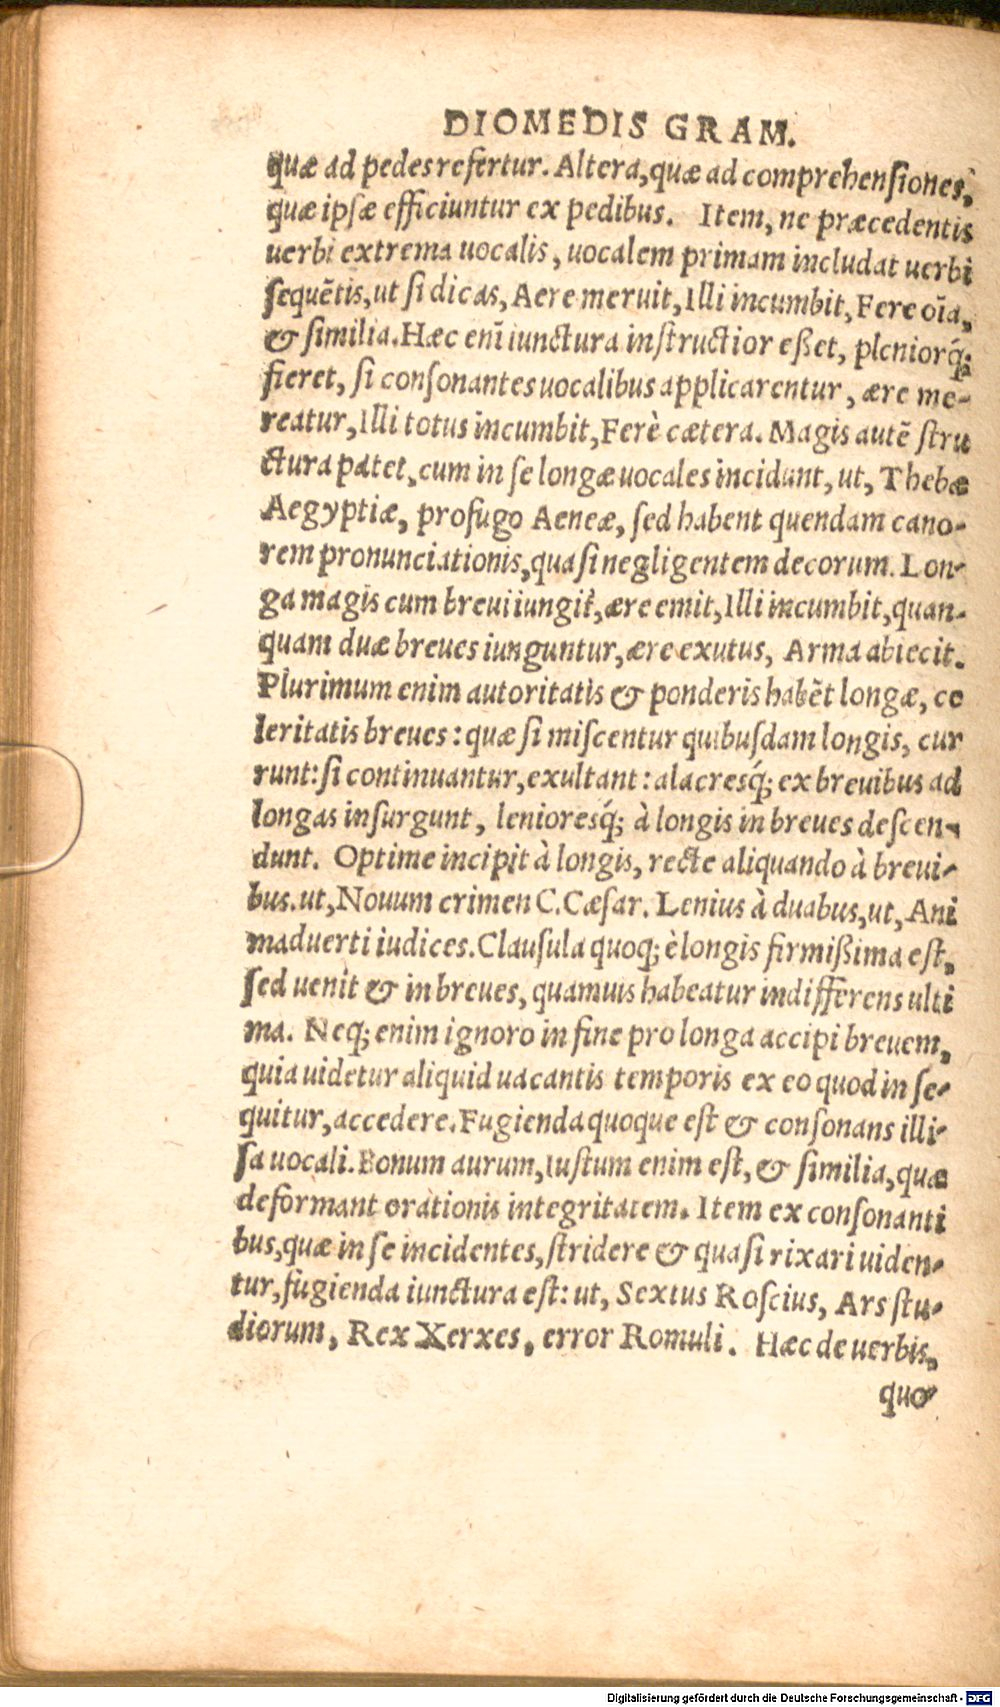 DIOMEDIS GRAM.
quæ ad pedes refertur. Altera, quæ ad comprehenſiones,
quæ ipſæ efficiuntur ex pedibus. Item, ne præcedentis
uerbi extrema uocalis, uocalem primam includat uerbi
ſequẽtis, ut ſi dicas, Aere meruit, Illi incumbit, Fere oĩa,
& ſimilia. Hæc enĩ iunctura inſtructior eßet, pleniorq́;
fieret, ſi conſonantes uocalibus applicarentur, ære me-
reatur, Illi totus incumbit, Ferè cætera. Magis autẽ ſtru
ctura patet, cum in ſe longæ uocales incidunt, ut, Thebæ
Aegyptiæ, profugo Aeneæ, ſed habent quendam cano-
rem pronunciationis, quaſi negligentem decorum. Lon-
ga magis cum breui iungit̃, ære emit, Illi incumbit, quan-
quam duæ breues iunguntur, ære exutus, Arma abiecit.
Plurimum enim autoritatis & ponderis habẽt longæ, ce
leritatis breues: quæ ſi miſcentur quibuſdam longis, cur
runt: ſi continuantur, exultant: alacresq́; ex breuibus ad
longas inſurgunt, lenioresq́; à longis in breues deſcen-
dunt. Optime incipit à longis, recte aliquando à breui-
bus. ut, Nouum crimen C. Cæſar. Lenius à duabus, ut, Ani
maduerti iudices. Clauſula quoq; è longis firmißima eſt,
ſed uenit & in breues, quamuis habeatur indifferens ulti
ma. Neq; enim ignoro in fine pro longa accipi breuem,
quia uidetur aliquid uacantis temporis ex eo quod in ſe-
quitur, accedere. Fugienda quoque eſt & conſonans illi-
ſa uocali. Bonum aurum, Iuſtum enim eſt, & ſimilia, quæ
deformant orationis integritatem. Item ex conſonanti
bus, quæ in ſe incidentes, ſtridere & quaſi rixari uiden-
tur, fugienda iunctura eſt: ut, Sextus Roſcius, Ars ſtu-
diorum, Rex Xerxes, error Romuli. Hæc de uerbis,
quo-
Digitalisierung gefördert durch die Deutsche Forschungsgemeinschaft - DFG